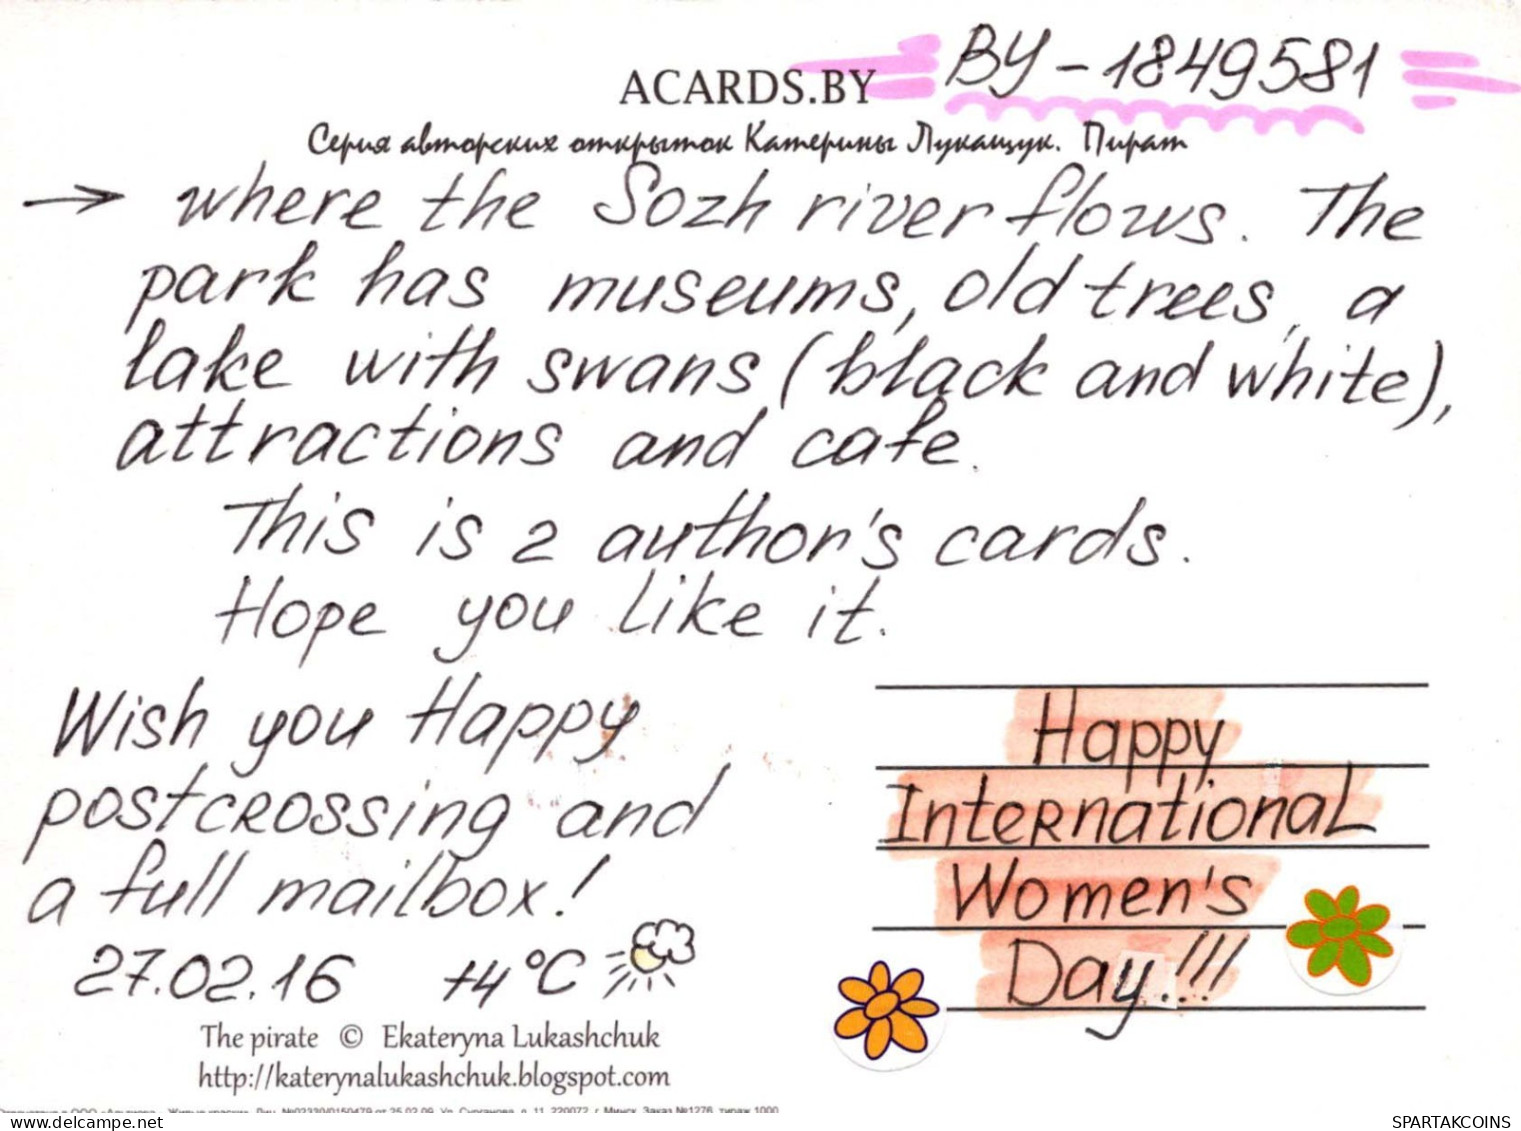 BY-1849581
ACARDS.BY
Серия авторских открыток Катерины Лукащук. Пират
→ where the Sozh river flows. The
park has museums, old trees, a
lake with swans (black and white),
attractions and cafe.
This is 2 author's cards.
Hope you like it.
Wish you Happy
postcrossing and
a full mailbox!
27.02.16 +4°C
Happy
International
Women's
Day!!!
The pirate © Ekateryna Lukashchuk
http://katerynalukashchuk.blogspot.com
№02330/0150479 от 25.02.09. Ул. Сурганова, д. 11, 220072, г. Минск. Заказ №1276, тираж 1000
www.delcampe.net
SPARTAKCOINS